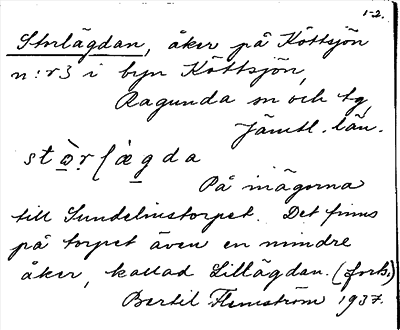 1-2.
Storlägdan, åker på Köttsjön
n:r 3 i byn Köttsjön,
Ragunda sn och tg,
Jämtl. län.
stò̱ṛlæ̱̀gda
På inägorna
till Sundelinstorpet. Det finns
på torpet även en mindre
åker, kallad Lillägdan. (forts.)
Bertil Flemström 1937.